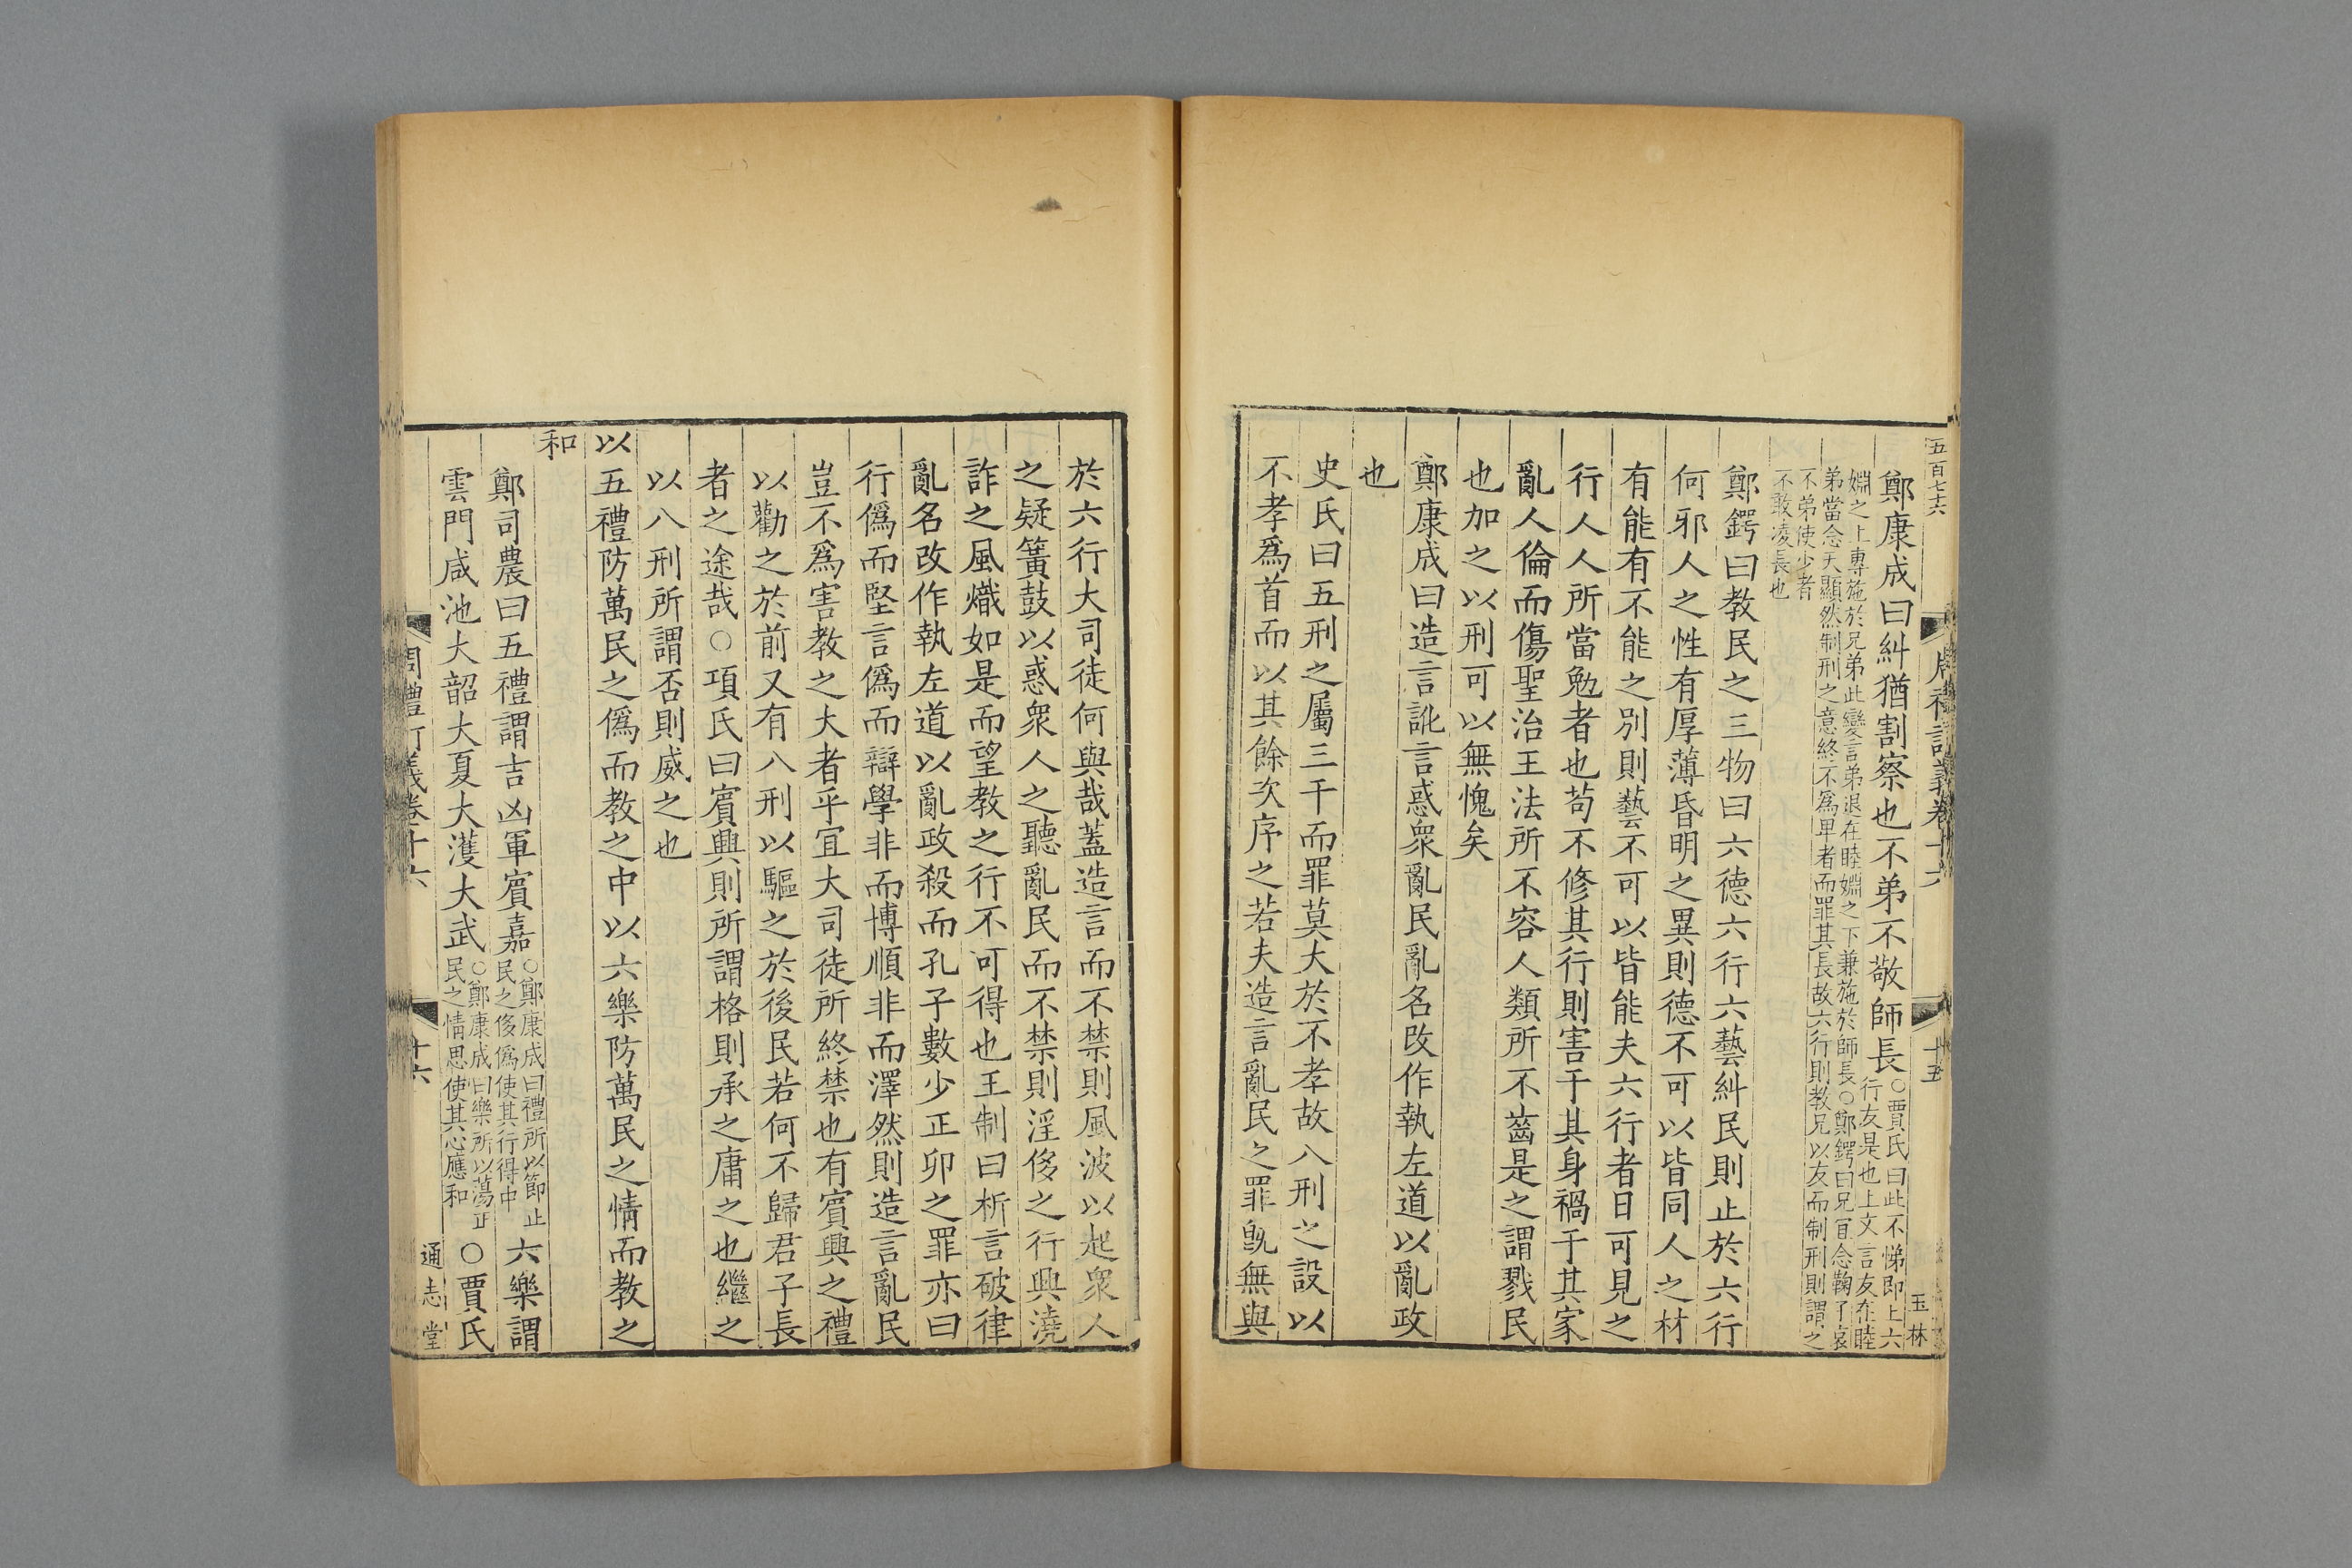 五百七六
周禮訂義卷十六
十五
玉林
鄭康成曰糾猶割察也不弟不敬師長○賈氏曰此不悌即上六
行友是也上文言友在睦
婣之上專施於兄弟此變言弟退在睦婣之下兼施於師長○鄭鍔曰兄宜念鞠子哀
弟當念天顯然制刑之意終不爲卑者而罪其長故六行則教兄以友而制刑則謂之
不弟使少者
不敢凌長也
鄭鍔曰教民之三物曰六德六行六藝糾民則止於六行
何邪人之性有厚薄昏明之異則德不可以皆同人之材
有能有不能之別則藝不可以皆能夫六行者日可見之
行人人所當勉者也苟不修其行則害于其身禍于其家
亂人倫而傷聖治王法所不容人類所不齒是之謂戮民
也加之以刑可以無愧矣
鄭康成曰造言訛言惑衆亂民亂名改作執左道以亂政
也
史氏曰五刑之屬三千而罪莫大於不孝故八刑之設以
不孝爲首而以其餘次序之若夫造言亂民之罪旣無與
於六行大司徒何與哉蓋造言而不禁則風波以起衆人
之疑簧鼓以惑衆人之聽亂民而不禁則淫侈之行興澆
詐之風熾如是而望教之行不可得也王制曰析言破律
亂名改作執左道以亂政殺而孔子數少正卯之罪亦曰
行僞而堅言僞而辯學非而博順非而澤然則造言亂民
豈不爲害教之大者乎宜大司徒所終禁也有賓興之禮
以勸之於前又有八刑以驅之於後民若何不歸君子長
者之途哉○項氏曰賓興則所謂格則承之庸之也繼之
以八刑所謂否則威之也
以五禮防萬民之僞而教之中以六樂防萬民之情而教之
和
鄭司農曰五禮謂吉凶軍賓嘉○鄭康成曰禮所以節止
民之侈僞使其行得中六樂謂
雲門咸池大韶大夏大濩大武○鄭康成曰樂所以蕩正
民之情思使其心應和○賈氏
周禮訂義卷十六
十六
通志堂